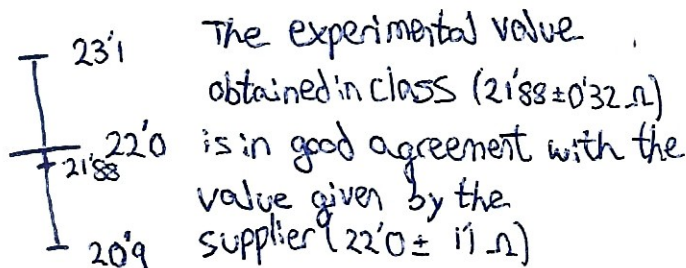 23'1 The experimental value
obtained in class (21'88±0'32 Ω)
22'0 is in good agreement with the
21'88 value given by the
20'9 supplier (22'0 ± 1'1 Ω)